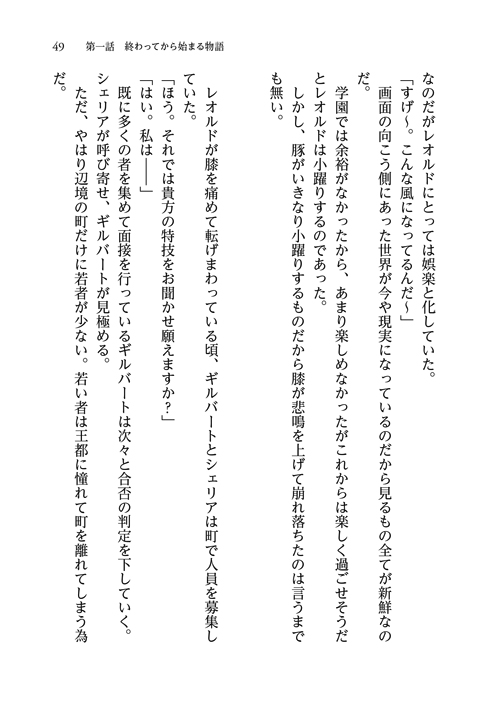 49　第一話　終わってから始まる物語
なのだがレオルドにとっては娯楽と化していた。
「すげ〜。こんな風になってるんだ〜」
　画面の向こう側にあった世界が今や現実になっているのだから見るもの全てが新鮮なの
だ。
　学園では余裕がなかったから、あまり楽しめなかったがこれからは楽しく過ごせそうだ
とレオルドは小躍りするのであった。
　しかし、豚がいきなり小躍りするものだから膝が悲鳴を上げて崩れ落ちたのは言うまで
も無い。
　レオルドが膝を痛めて転げまわっている頃、ギルバートとシェリアは町で人員を募集し
ていた。
「ほう。それでは貴方の特技をお聞かせ願えますか？」
「はい。私は――」
　既に多くの者を集めて面接を行っているギルバートは次々と合否の判定を下していく。
シェリアが呼び寄せ、ギルバートが見極める。
　ただ、やはり辺境の町だけに若者が少ない。若い者は王都に憧れて町を離れてしまう為
だ。